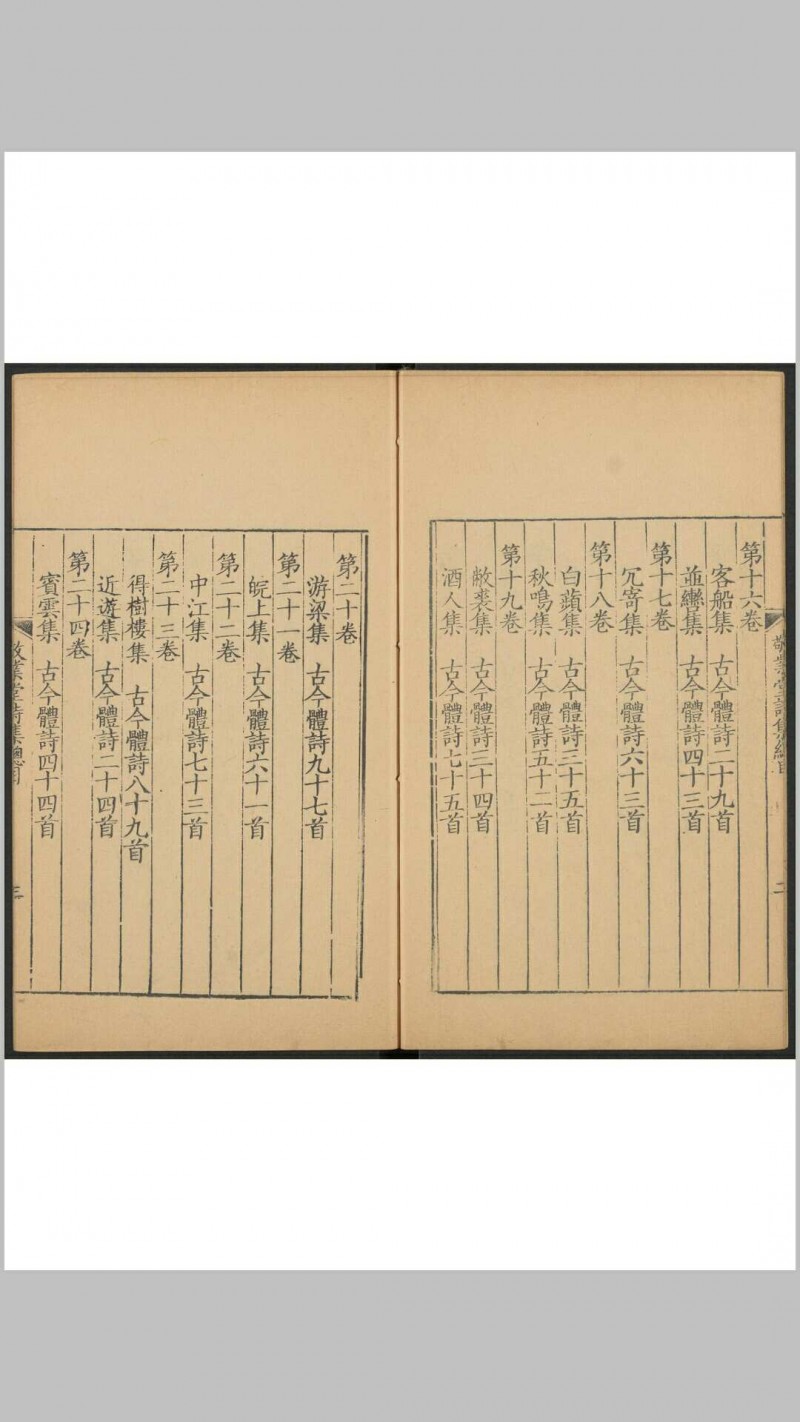 第十六卷
客船集　古今體詩二十九首
並轡集　古今體詩四十三首
第十七卷
冗寄集　古今體詩六十三首
第十八卷
白蘋集　古今體詩三十五首
秋鳴集　古今體詩五十二首
第十九卷
敝裘集　古今體詩三十四首
酒人集　古今體詩七十五首
敬業堂詩集總目
二
第二十卷
游梁集　古今體詩九十七首
第二十一卷
皖上集　古今體詩六十一首
第二十二卷
中江集　古今體詩七十三首
第二十三卷
得樹樓集　古今體詩八十九首
近遊集　古今體詩二十四首
第二十四卷
賓雲集　古今體詩四十四首
敬業堂詩集總目
三